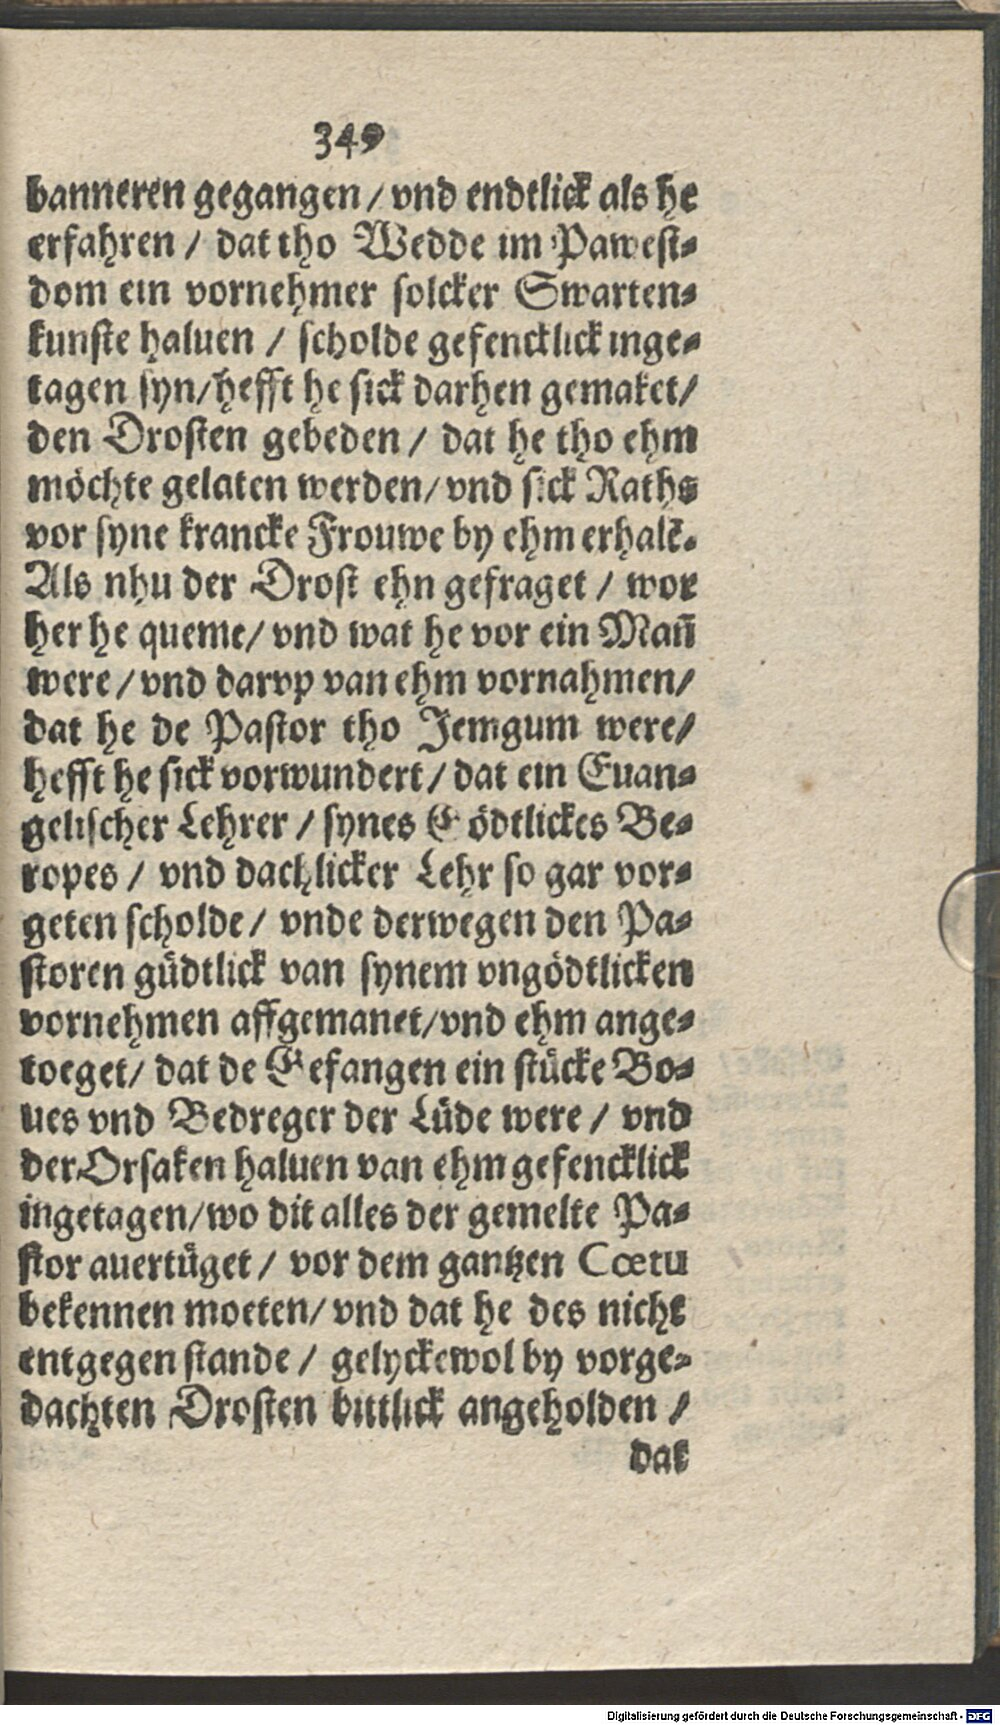 349
banneren gegangen / vnd endtlick als he
erfahren / dat tho Wedde im Pawest⸗
dom ein vornehmer solcker Swarten⸗
kunste haluen / scholde gefencklick inge⸗
tagen syn/ hefft he sick darhen gemaket/
den Drosten gebeden / dat he tho ehm
möchte gelaten werden/ vnd sick Raths
vor syne krancke Frouwe by ehm erhalē.
Als nhu der Drost ehn gefraget / wor
her he queme/ vnd wat he vor ein Mañ
were / vnd darvp van ehm vornahmen/
dat he de Pastor tho Jemgum were/
hefft he sick vorwundert / dat ein Euan⸗
gelischer Lehrer / synes Gödtlickes Be⸗
ropes / vnd dachlicker Lehr so gar vor⸗
geten scholde / vnde derwegen den Pa⸗
storen güdtlick van synem vngödtlicken
vornehmen affgemanet/vnd ehm ange⸗
toeget/ dat de Gefangen ein stücke Bo⸗
ues vnd Bedreger der Lüde were / vnd
der Orsaken haluen van ehm gefencklick
ingetagen/wo dit alles der gemelte Pa⸗
stor auertüget / vor dem gantzen Cœtu
bekennen moeten/ vnd dat he des nicht
entgegen stande / gelyckewol by vorge⸗
dachten Drosten bittlick angeholden /
dat
Digitalisierung gefördert durch die Deutsche Forschungsgemeinschaft - DFG